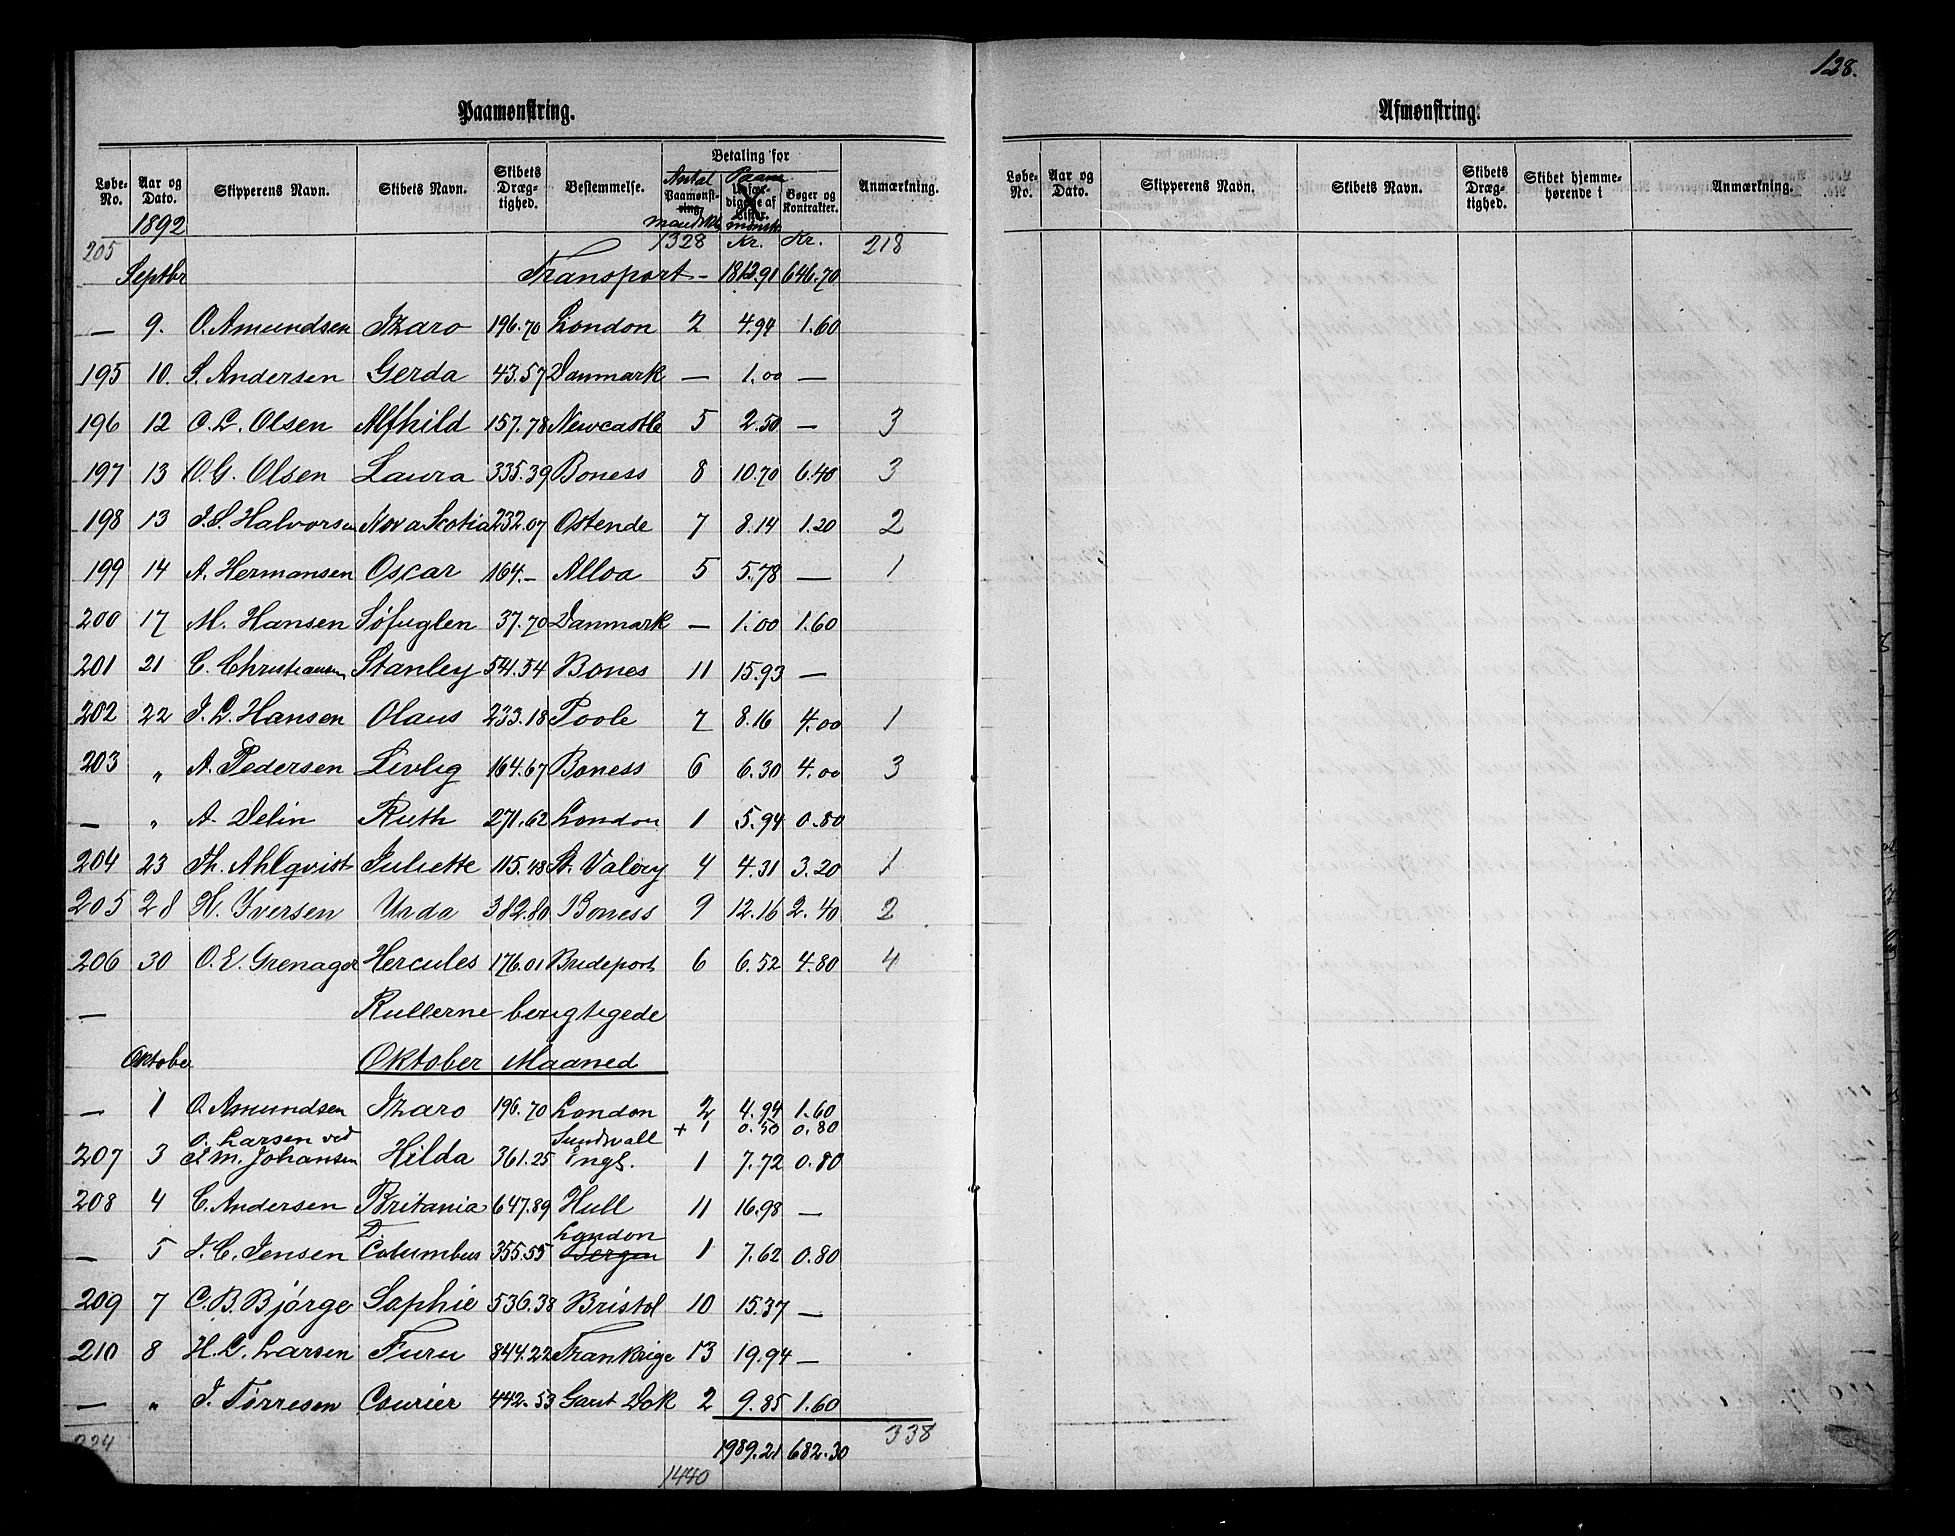 128.
Paamønstring.
Afmønstring.
Løbe-No. Aar og Dato. Skipperens Navn. Skibets Navn. Skibets Dræg-tighed. Bestemmelse. Betaling for Antal Paamønst-ring mandskb Paam Udfær-digelse af Lister. mønstr Bøger og Kontrakter. Anmærkning.
Løbe-No. Aar og Dato. Skipperens Navn. Skibets Navn. Skibets Dræg-tighed. Skibet hjemme-hørende i Anmærkning.
1892
205 1328 Kr. Kr. 218
Septbr Transport - 1812.91 646.70
— 9. O. Amundsen Izaro 196.70 London 2 4.94 1.60
195 10. S. Andersen Gerda 43.57 Danmark — 1.00 —
196 12 O. L. Olsen Alfhild 157.78 Newcastle 5 2.50 — 3
197 13 O. G. Olsen Laura 335.39 Boness 8 10.70 6.40 3
198 13 J. S. Halvorsen Nova Scotia 232.07 Ostende 7 8.14 1.20 2
199 14 A. Hermansen Oscar 164.— Alloa 5 5.78 — 1
200 17 M. Hansen Søfuglen 37.70 Danmark — 1.00 1.60
201 21 C. Christiansen Stanley 541.54 Bones 11 15.93 —
202 22 J. L. Hansen Olaus 233.18 Poole 7 8.16 4.00 1
203 " A. Pedersen Livlig 164.67 Boness 6 6.30 4.00 3
— " A. Delin Ruth 271.62 London 1 5.94 0.80
204 23 Th. Ahlqvist Juliette 115.48 St. Valery 4 4.31 3.20 1
205 28 H. Iversen Urda 382.80 Boness 9 12.16 2.40 2
206 30 O. E. Grenager Hercules 176.01 Brideport 6 6.52 4.80 4
— Rullerne berigtigede
Oktober Oktober Maaned
— 1 O. Amundsen Izaro 196.70 London 2 4.94 1.60
O. Larsen ved Sundsvall + 1 0.50 0.80
207 3 J. M. Johansen Hilda 361.25 Engl. 1 7.72 0.80
208 4 C. Andersen Britania 647.89 Hull 11 16.98 —
D. London
— 5 J. C. Jensen Columbus 355.55 Bergen 1 7.62 0.80
209 7 C. B. Bjørge Sophie 536.38 Bristol 10 15.37 —
210 8 H. L. Larsen Furu 844.22 Frankrige 13 19.94 —
— " J. Tørresen Courier 442.53 Garst Dok 2 9.85 1.60
224 1989.21 682.30 338
1440